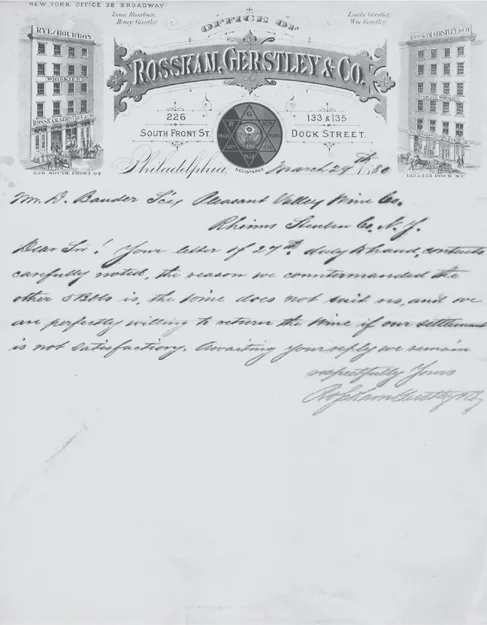 NEW YORK OFFICE 38 BROADWAY
Isaac Rosskam, Louis Gerstley,
Henry Gerstley Wm. Gerstley,
OFFICE OF
ROSSKAM, GERSTLEY & CO.
RYE & BOURBON
WHISKIES
226 133 & 135
SOUTH FRONT ST. DOCK STREET.
REGISTERED
226 SOUTH FRONT ST. 133 & 135 DOCK ST.
Philadelphia March 29th 1880
Mr. D. Bauder Pleasant Valley Wine Co.
Rhimms Steuben Co. N. Y.
Dear Sir! Your letter of 27th duly to hand, contents
carefully noted, the reason we countermanded the
other 5 Bbls is, the wine does not suit us, and we
are perfectly willing to return the Wine if our settlement
is not Satisfactory. Awaiting your reply we remain
respectfully Yours
Rosskam Gerstley & Co